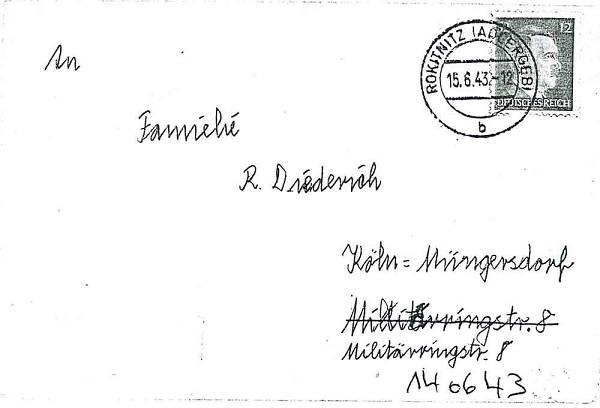 An
Familie
R. Diederich
Köln=Müngersdorf
Militärringstr. 8
Militärringstr. 8
140643
ROKITNITZ (ADLERGEB)
15.6.43.-12
b
12
DEUTSCHES REICH